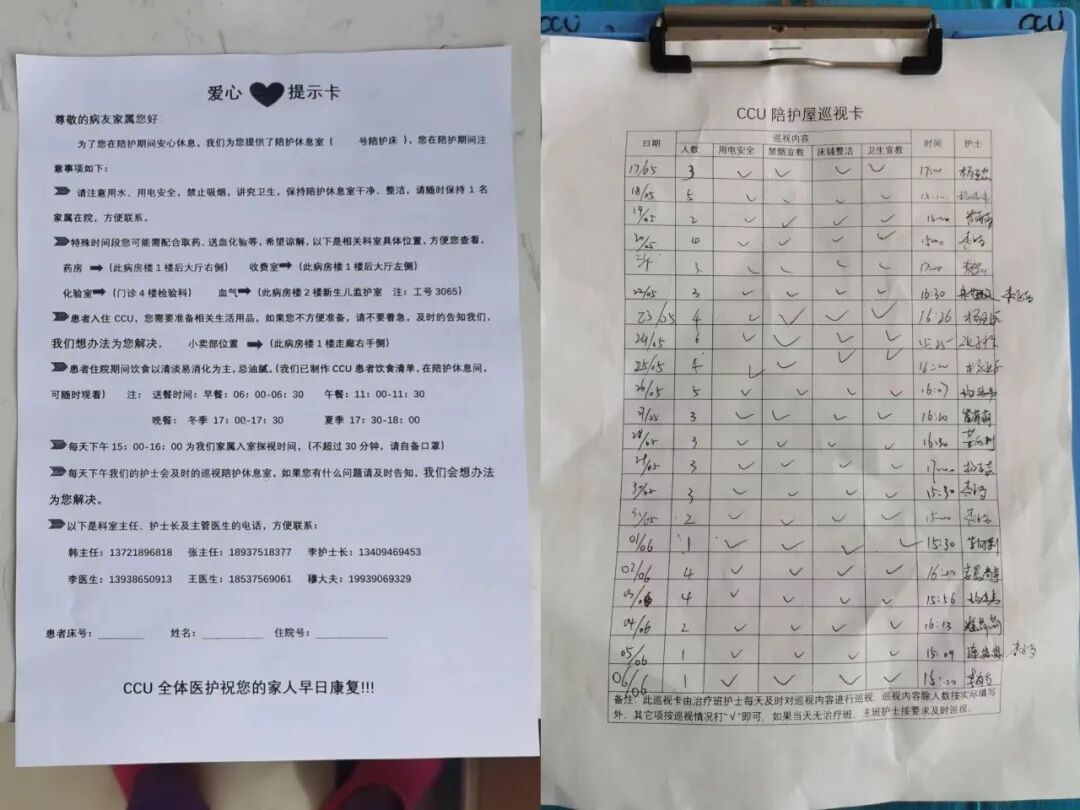 爱心 提示卡
尊敬的病友家属您好:
为了您在陪护期间安心休息，我们为您提供了陪护休息室（ 号陪护床），您在陪护期间注
意事项如下：
请注意用水、用电安全，禁止吸烟，讲究卫生，保持陪护休息室干净、整洁，请随时保持 1 名
家属在院，方便联系。
特殊时间段您可能需配合取药、送血化验等，希望谅解，以下是相关科室具体位置，方便您查看。
药房 ➡（此病房楼 1 楼后大厅右侧） 收费室➡（此病房楼 1 楼后大厅左侧）
化验室➡（门诊 4 楼检验科） 血气➡（此病房楼 2 楼新生儿监护室 注：工号 3065）
患者入住 CCU，您需要准备相关生活用品，如果您不方便准备，请不要着急，及时的告知我们，
我们想办法为您解决。 小卖部位置 ➡（此病房楼 1 楼走廊右手侧）
患者住院期间饮食以清淡易消化为主，忌油腻。（我们已制作 CCU 患者饮食清单，在陪护休息间，
可随时观看） 注： 送餐时间：早餐：06：00-06：30 午餐：11：00-11：30
晚餐： 冬季 17：00-17：30 夏季 17：30-18：00
每天下午 15：00-16：00 为我们家属入室探视时间，（不超过 30 分钟，请自备口罩）
每天下午我们的护士会及时的巡视陪护休息室，如果您有什么问题请及时告知，我们会想办法
为您解决。
以下是科室主任、护士长及主管医生的电话，方便联系：
韩主任：13721896818 张主任：18937518377 李护士长：13409469453
李医生：13938650913 王医生：18537569061 穆大夫：19939069329
患者床号： 姓名： 住院号：
CCU 全体医护祝您的家人早日康复!!!
CCU CCU
CCU 陪护屋巡视卡
日期 人数 巡视内容 时间 护士
用电安全 禁烟宣教 床铺整洁 卫生宣教
17/05 3 ✓ ✓ ✓ ✓ 17:00
18/05 5 ✓ ✓ ✓ ✓ 15:10
19/05 2 ✓ ✓ ✓ ✓ 15:00
20/05 ✓ ✓ ✓ ✓ 15:00
3 ✓ ✓ ✓ 17:00
22/05 3 ✓ ✓ ✓ ✓ 16:30
23/05 4 ✓ ✓ ✓ ✓ 16:26
24/05 6 ✓ ✓ ✓ ✓ 15:25
25/05 4 ✓ ✓ ✓ ✓ 16:00
26/05 5 ✓ ✓ ✓ ✓ 16:07
27/05 3 ✓ ✓ ✓ ✓ 16:20
28/05 3 ✓ ✓ ✓ ✓ 16:30
29/05 3 ✓ ✓ ✓ ✓ 17:00
30/05 3 ✓ ✓ ✓ ✓ 15:30
31/05 2 ✓ ✓ ✓ ✓ 15:00
01/06 1 ✓ ✓ ✓ ✓ 15:30
02/06 4 ✓ ✓ ✓ ✓ 16:00
03/06 4 ✓ ✓ ✓ ✓ 15:56
04/06 2 ✓ ✓ ✓ ✓ 16:13
05/06 1 ✓ ✓ ✓ ✓ 15:09
06/06 1 ✓ ✓ ✓ ✓ 15:00
备注：此巡视卡由治疗班护士每天及时对巡视内容进行巡视，巡视内容除人数按实际填写
外，其它项按巡视情况打"√"即可，如果当天无治疗班，主班护士按要求及时巡视。